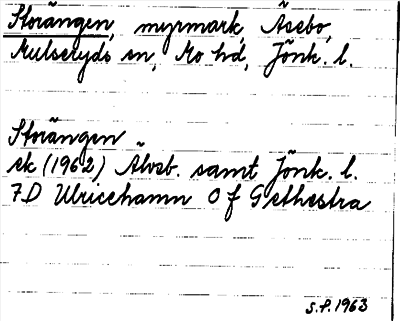 Storängen, myrmark, Åsebo,
Mulseryds sn, Mo hd, Jönk. l.
Storängen
ek (1962) Älvsb. samt Jönk. l.
7D Ulricehamn 0 f Gethestra
S.P. 1963